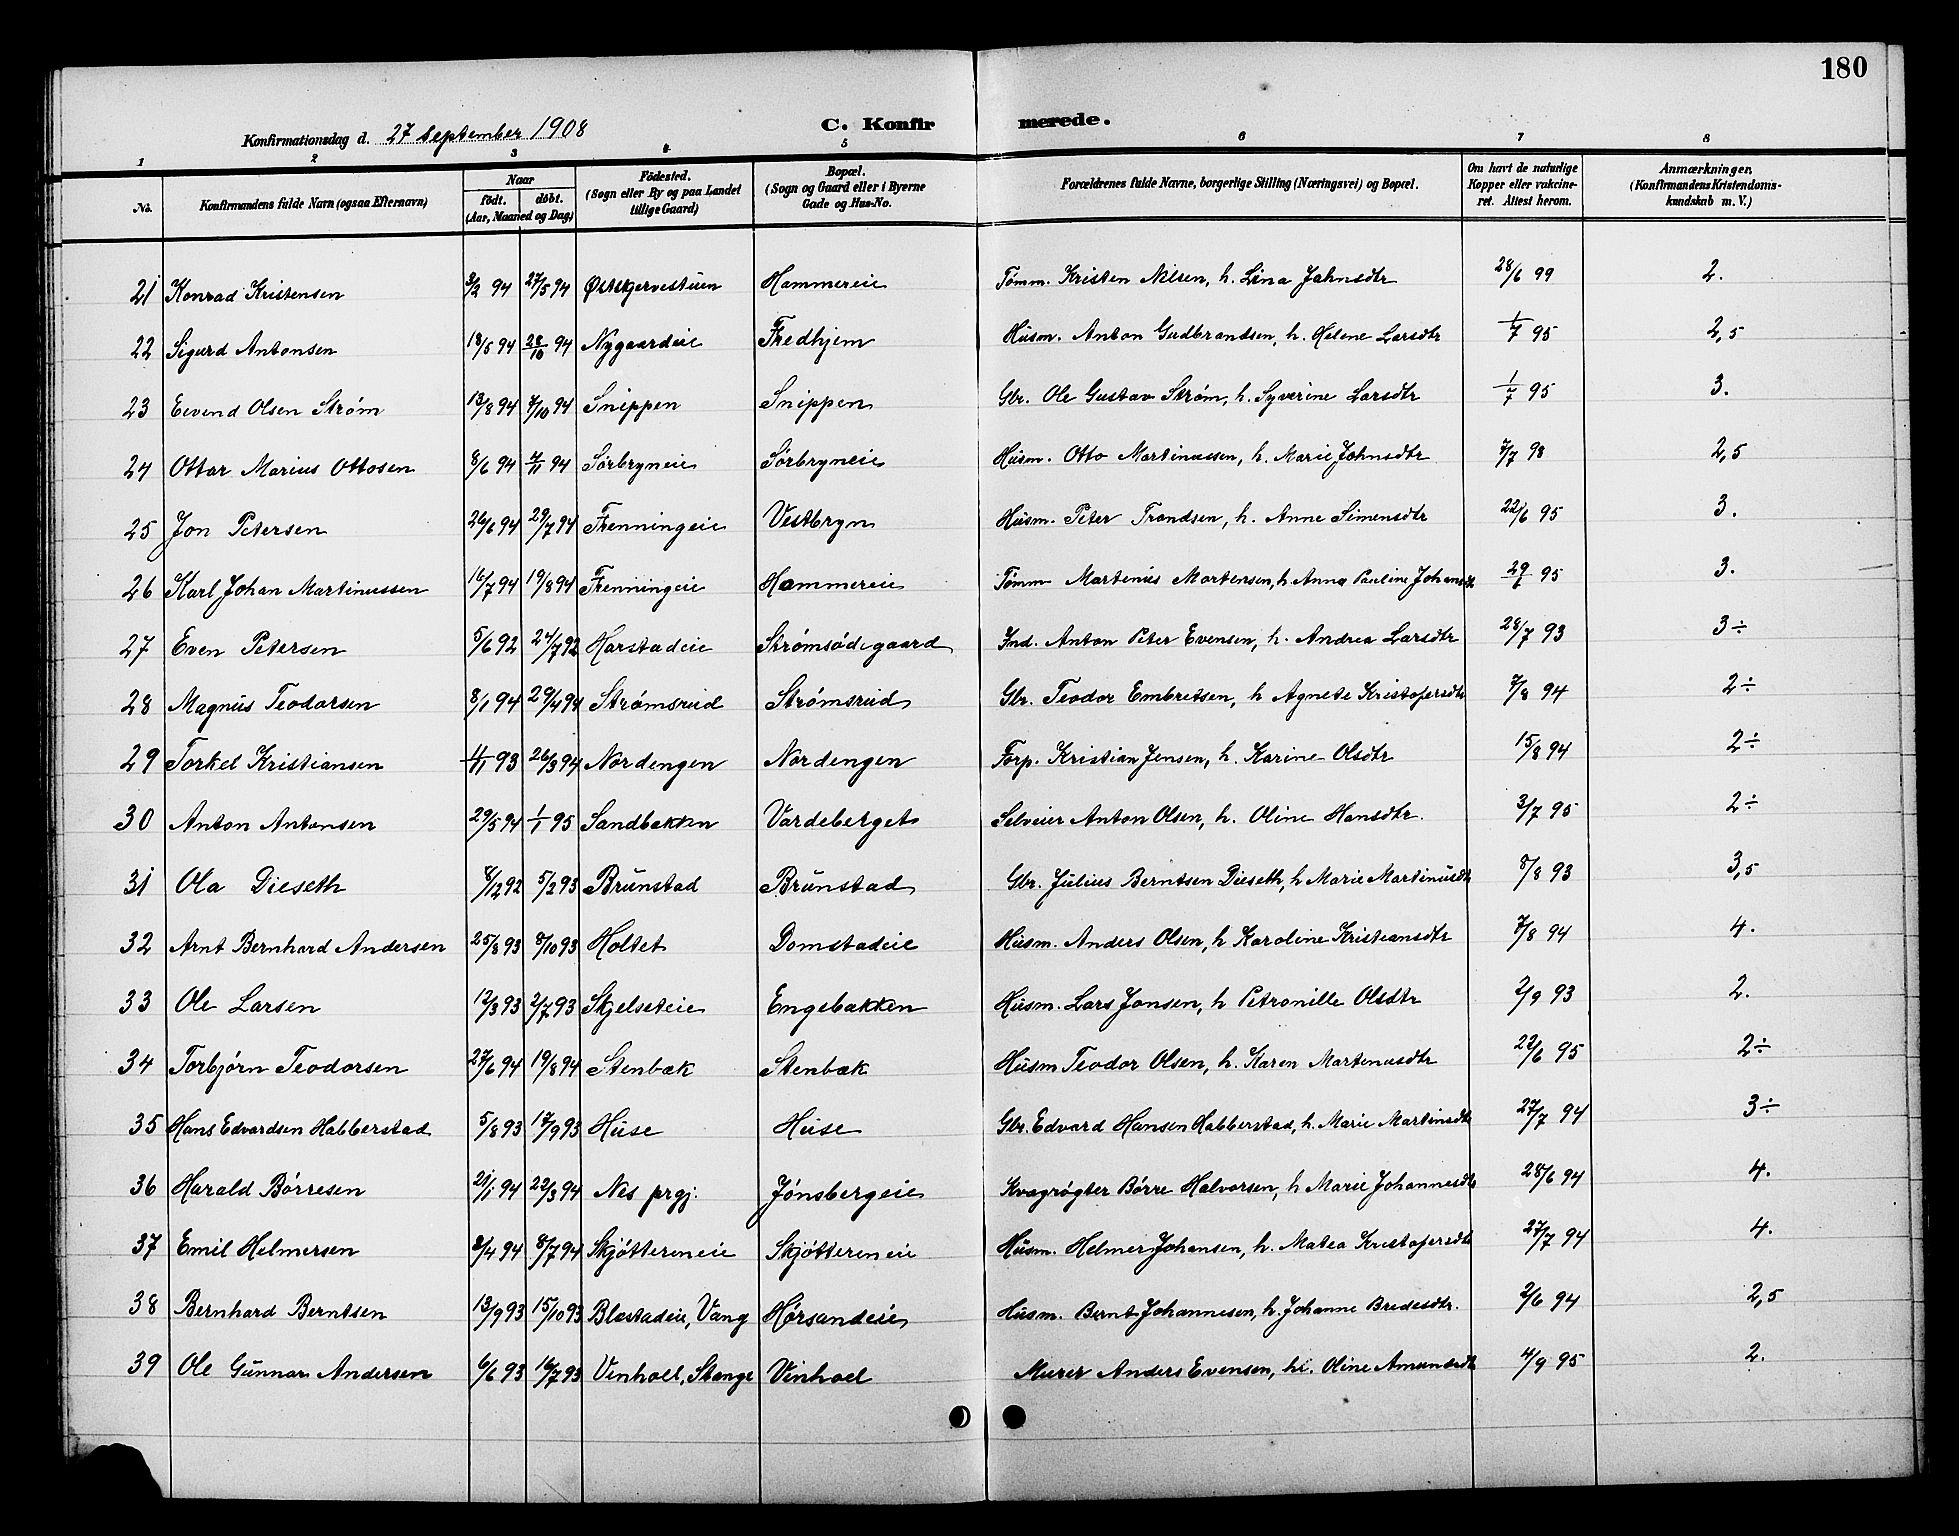 180
Konfirmationsdag d. 27 September 1908 C. Konfirmerede.
1 2 3 4 5 6 7 8
No. Konfirmandens fulde Navn (ogsaa Efternavn) Naar født. døbt. (Aar, Maaned og Dag) Fødested. (Sogn eller By og paa Landet tillige Gaard) Bopæl. (Sogn og Gaard eller i Byerne Gade og Hus-No. Forældrenes fulde Navne, borgerlige Stilling (Næringsvei) og Bopæl. Om havt de naturlige Kopper eller vakcineret. Attest herom. Anmærkninger. (Konfirmandens Kristendomskundskab m. V.)
21 Konrad Kristensen 3/2 94 27/5 94 Østskjervestuen Hammereie Tømm. Kristen Nilsen, h. Lina Jahnsdtr 28/6 99 2.
22 Sigurd Antonsen 18/5 94 28/10 94 Nygaardeie Fredhjem Husm. Anton Gudbrandsen, h. Helene Larsdtr 1/7 95 2,5
23 Eevend Olsen Strøm 13/8 94 7/10 94 Snippen Snippen Gbr. Ole Gustav Strøm, h. Syverine Larsdtr 1/7 95 3.
24 Ottar Marius Ottosen 8/6 94 4/11 94 Sørbryneie Sørbryneie Husm. Otto Martinussen, h. Marie Johnsdtr 7/7 98 2,5
25 Jon Petersen 26/6 94 29/7 94 Frenningeie Vestbryn Husm. Peter Trondsen, h. Anne Simensdtr 22/6 95 3.
26 Karl Johan Martinussen 16/7 94 19/8 94 Frenningeie Hammereie Tømm Martenius Mortensen, h. Anna Pauline Johansdtr 29/7 95 3.
27 Even Petersen 5/6 92 24/7 92 Harstadeie Strømsødegaard Ind. Anton Peter Evensen, h. Andrea Larsdtr 28/7 93 3÷
28 Magnus Teodorsen 8/1 94 29/4 94 Strømsrud Strømsrud Gbr. Teodor Embretsen, h Agnete Kristofersdtr 7/8 94 2÷
29 Torkel Kristiansen 11/11 93 26/3 94 Nordengen Nordengen Forp. Kristian Jensen, h. Karine Olsdtr 15/8 94 2÷
30 Anton Antonsen 29/5 94 1/1 95 Sandbakken Vardeberget Selveier Anton Olsen, h. Oline Hansdtr. 3/7 95 2÷
31 Ola Dieseth 8/12 92 5/2 93 Brunstad Brunstad Gbr. Julius Berntsen Dieseth, h Marie Martinusdtr 8/8 93 3,5
32 Arnt Bernhard Andersen 25/8 93 8/10 93 Holtet Domstadeie Husm. Anders Olsen, h Karoline Kristiansdtr 7/8 94 4.
33 Ole Larsen 12/3 93 2/7 93 Skjelseteie Engebakken Husm. Lars Jonsen, h Petronille Olsdtr 2/9 93 2.
34 Torbjørn Teodorsen 27/6 94 19/8 94 Stenbæk Stenbæk Husm Teodor Olsen, h. Karen Martenusdtr 22/6 95 2÷
35 Hans Edvardsen Habberstad 5/8 93 17/9 93 Huse Huse Gbr. Edvard Hansen Habberstad, h. Marie Martinsdtr 27/7 94 3÷
36 Harald Børresen 21/1 94 22/3 94 Nes prgj. Jønsbergeie Kvægrøgter Børre Halvorsen, h Marie Johannesdtr 28/6 94 4.
37 Emil Helmersen 8/4 94 8/7 94 Skjøttereneie Skjøttereneie Husm. Helmer Johansen, h. Matea Kristofersdtr 27/7 94 4.
38 Bernhard Berntsen 13/9 93 15/10 93 Blæstadeie, Vang Hørsandeie Husm. Bernt Johannesen, h. Johanne Bredesdtr. 2/6 94 2,5
39 Ole Gunnar Andersen 6/6 93 16/7 93 Vinhoel, Stange Vinhoel Murer Anders Evensen, h. Oline Amundsdtr 4/9 95 2.